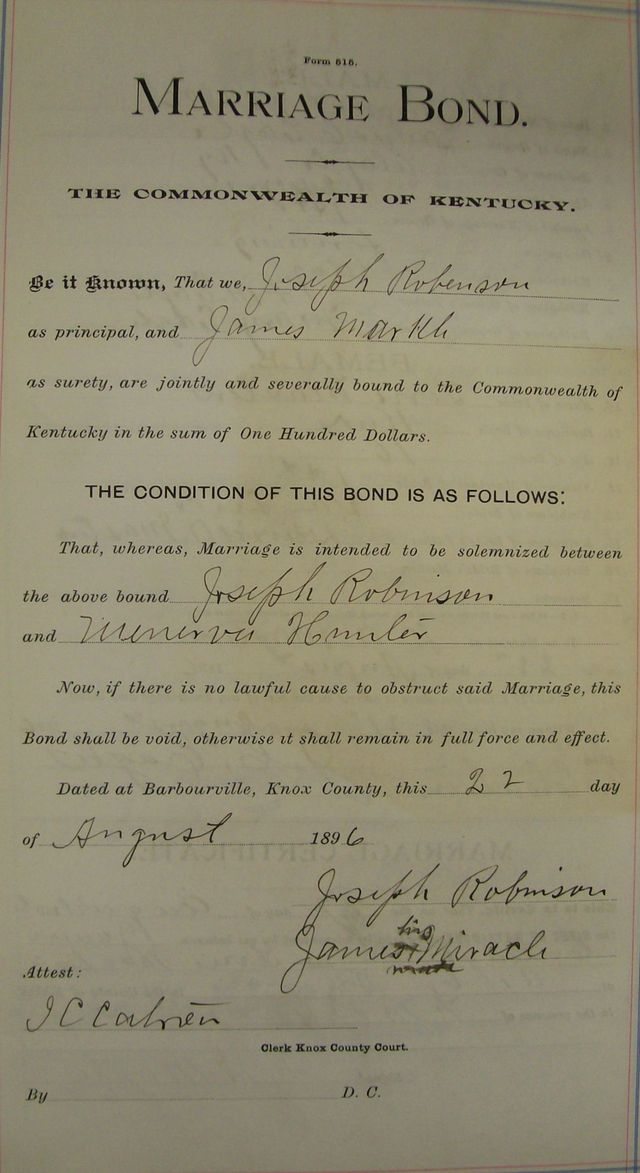 Form 616.
MARRIAGE BOND.
THE COMMONWEALTH OF KENTUCKY.
Be it Known, That we, Joseph Robenson
as principal, and James Markle
as surety, are jointly and severally bound to the Commonwealth of
Kentucky in the sum of One Hundred Dollars.
THE CONDITION OF THIS BOND IS AS FOLLOWS:
That, whereas, Marriage is intended to be solemnized between
the above bound Joseph Robinson
and Menerva Hunter
Now, if there is no lawful cause to obstruct said Marriage, this
Bond shall be void, otherwise it shall remain in full force and effect.
Dated at Barbourville, Knox County, this 22 day
of August 1896
Joseph Robinson
his
James Miracle
Attest:
Clerk Knox County Court.
By D. C.